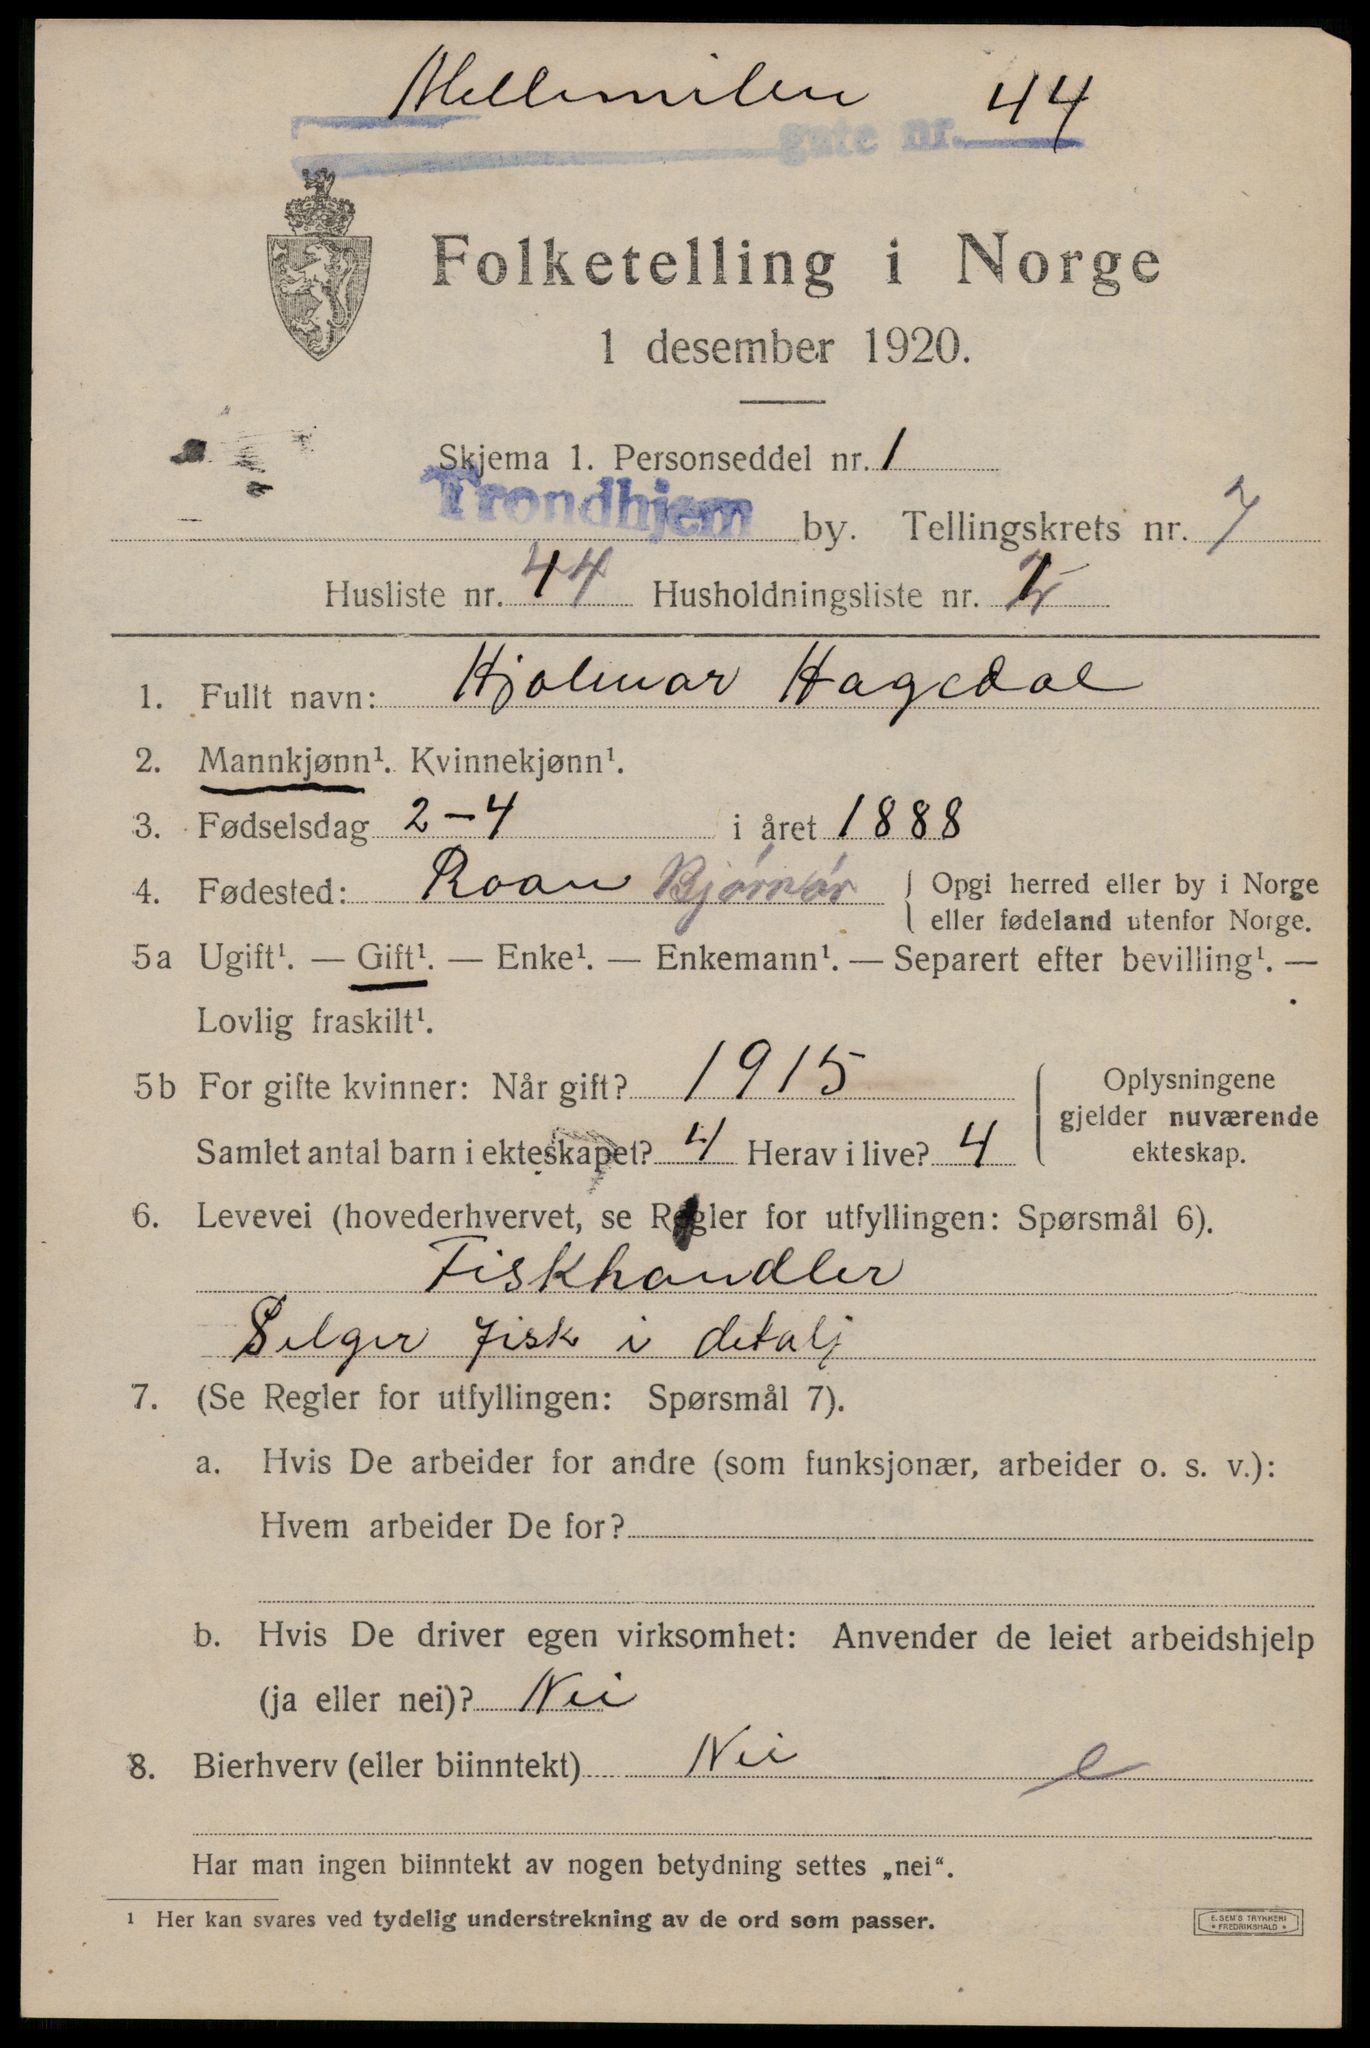 Mellemilen 44
gate nr.
Folketelling i Norge
1 desember 1920.
Skjema 1. Personseddel nr. 1
Trondhjem by. Tellingskrets nr. 7
Husliste nr. 44 Husholdningsliste nr.
1. Fullt navn: Hjalmar Hagedal
2. Mannkjønn¹. Kvinnekjønn¹.
3. Fødselsdag 2-4 i året 1888
4. Fødested: Roan Bjørnør { Opgi herred eller by i Norge
eller fødeland utenfor Norge.
5a Ugift¹. — Gift¹. — Enke¹. — Enkemann¹. — Separert efter bevilling¹. —
Lovlig fraskilt¹.
5b For gifte kvinner: Når gift? 1915
Samlet antal barn i ekteskapet? 4 Herav i live? 4
Oplysningene
gjelder nuværende
ekteskap.
6. Levevei (hovederhvervet, se Regler for utfyllingen: Spørsmål 6).
Fiskhandler
Selger fisk i detalj
7. (Se Regler for utfyllingen: Spørsmål 7).
a. Hvis De arbeider for andre (som funksjonær, arbeider o. s. v.):
Hvem arbeider De for?
b. Hvis De driver egen virksomhet: Anvender de leiet arbeidshjelp
(ja eller nei)? Nei
8. Bierhverv (eller biinntekt) Nei e
Har man ingen biinntekt av nogen betydning settes „nei“.
¹ Her kan svares ved tydelig understrekning av de ord som passer.
E. SEM'S TRYKKERI
* FREDRIKSHALD *